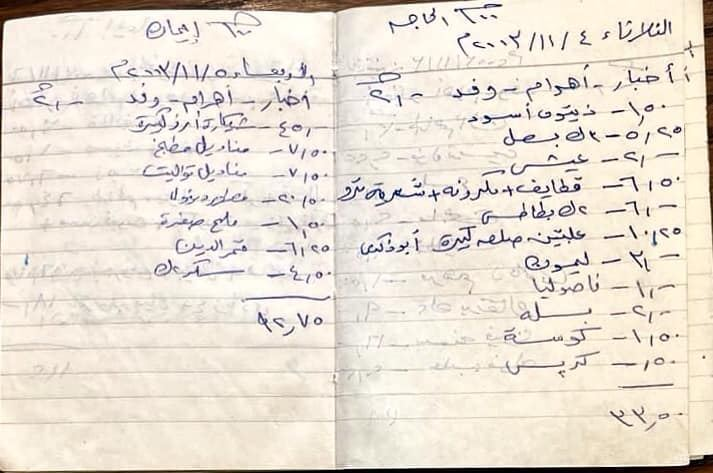 الحاجه
الثلاثاء ٤ / ١١ / ٢٠٠٣م
أخبار - أهرام - وفد ٢,-
١,٥٠ - زيتون أسود
٥,٢٥ - ٣ك بصل
٢,- - عيش
٦,٥٠ - قطايف + مكرونه + شعرية
٦,- - ٤ك بطاطس
١٠,٢٥ - علبتين صلصه كبيرة أبوذكري
٣,- - ليمون
١,- - فاصوليا
٢,- - بسله
١,٥٠ - كوسة
,٥٠ - كربس
٣٣,٥٠
إيمان
الأربعاء ٥ / ١١ / ٢٠٠٣م
أخبار - أهرام - وفد ٢,-
٤٥,- - شيكارة أرز كبيرة
٧,٥٠ - مناديل مطبخ
٧,٥٠ - مناديل تواليت
٢٠,٥٠ -
١,٥٠ - ملح صغيرة
٦,٢٥ - قمر الدين
٤,٥٠ - سكر ٢ك
٩٢,٧٥